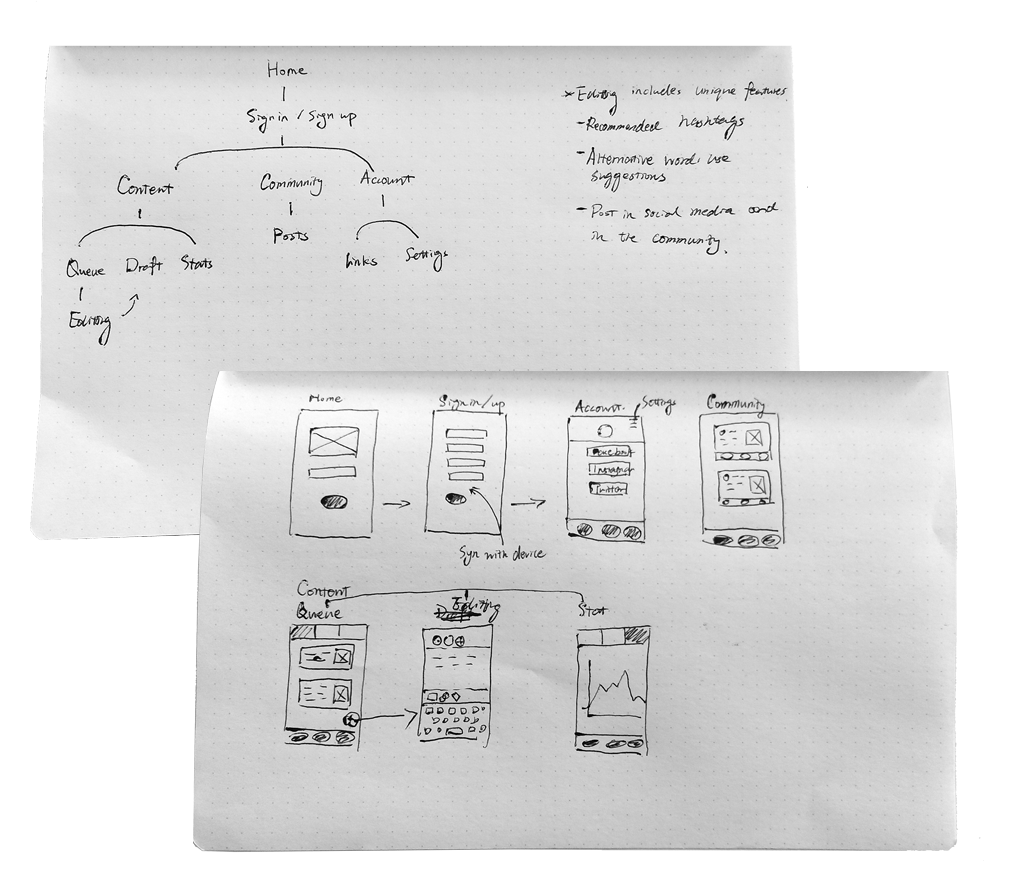 Home
Sign in / Sign up
Content
Community
Account
Posts
Links
Settings
Queue
Draft
Stats
Editing
* Editing includes unique features.
- Recommended hashtags
- Alternative words use
suggestions
- Post in social media and
in the community.
Home
Sign in / up
Account.
Settings
Community
Facebook
Instagram
Twitter
Syn with device
Content
Queue
Editing
Stat